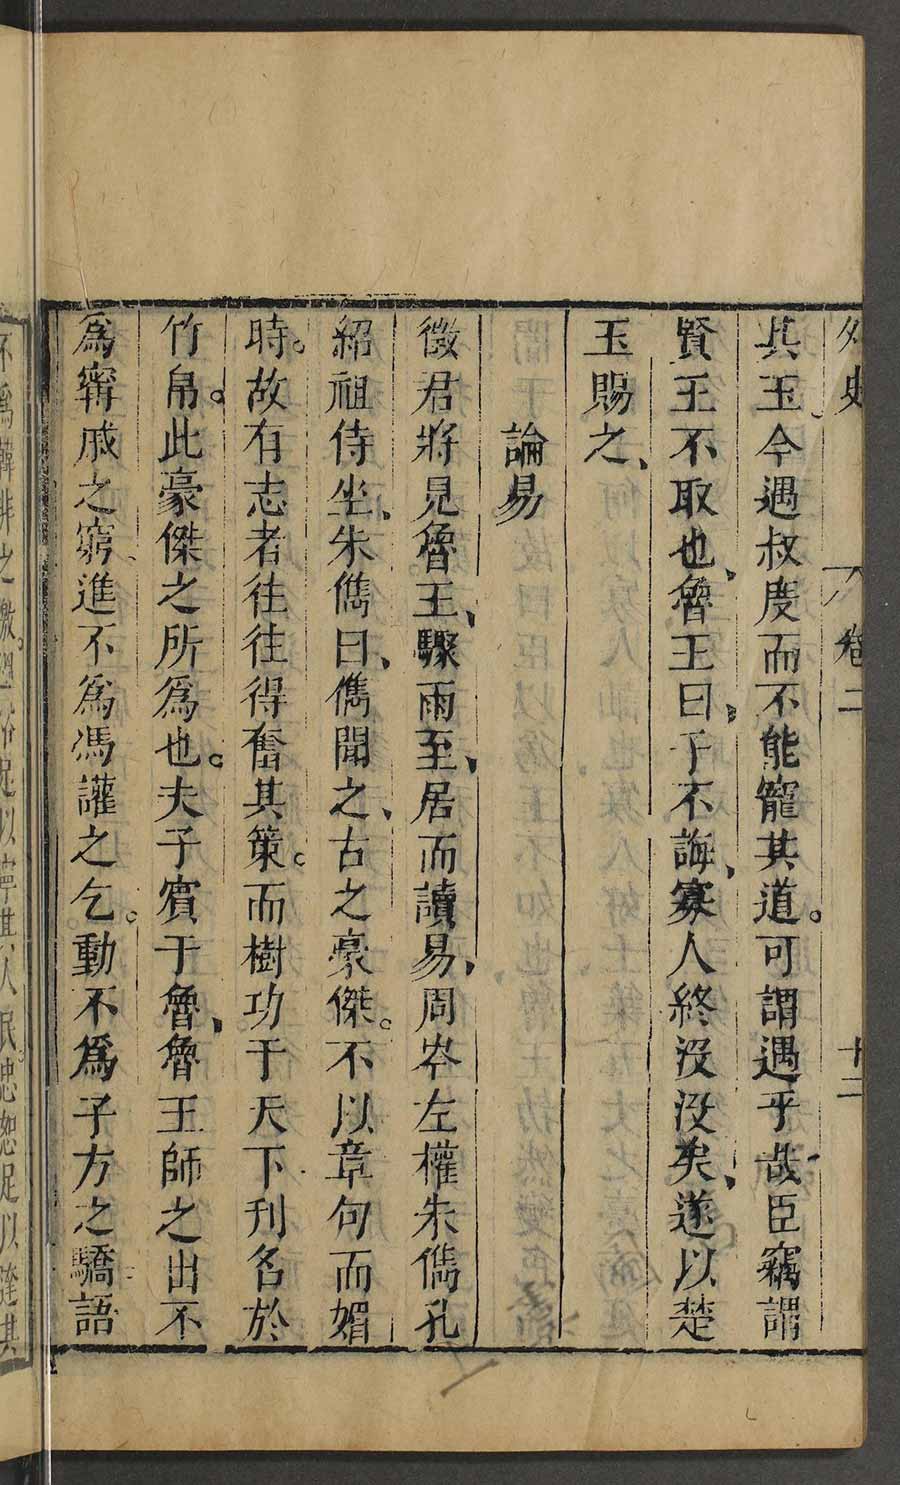 外史 卷二 十二
其玉今遇叔度而不能寵其道。可謂遇乎哉臣竊謂
賢王不取也、魯王曰、子不誨、寡人終没没矣、遂以楚
玉賜之、
論易
徵君將見魯王、驟雨至、居而讀易、周岑左權朱儁孔
紹祖侍坐、朱儁曰、儁聞之、古之豪傑。不以章句而媚
時。故有志者往往得奮其策。而樹功于天下刊名於
竹帛。此豪傑之所爲也。夫子賓于魯、魯王師之出不
爲甯戚之窮、進不爲馮讙之乞。動不爲子方之驕語
不爲韓非之激。
人民忠恕足以
其